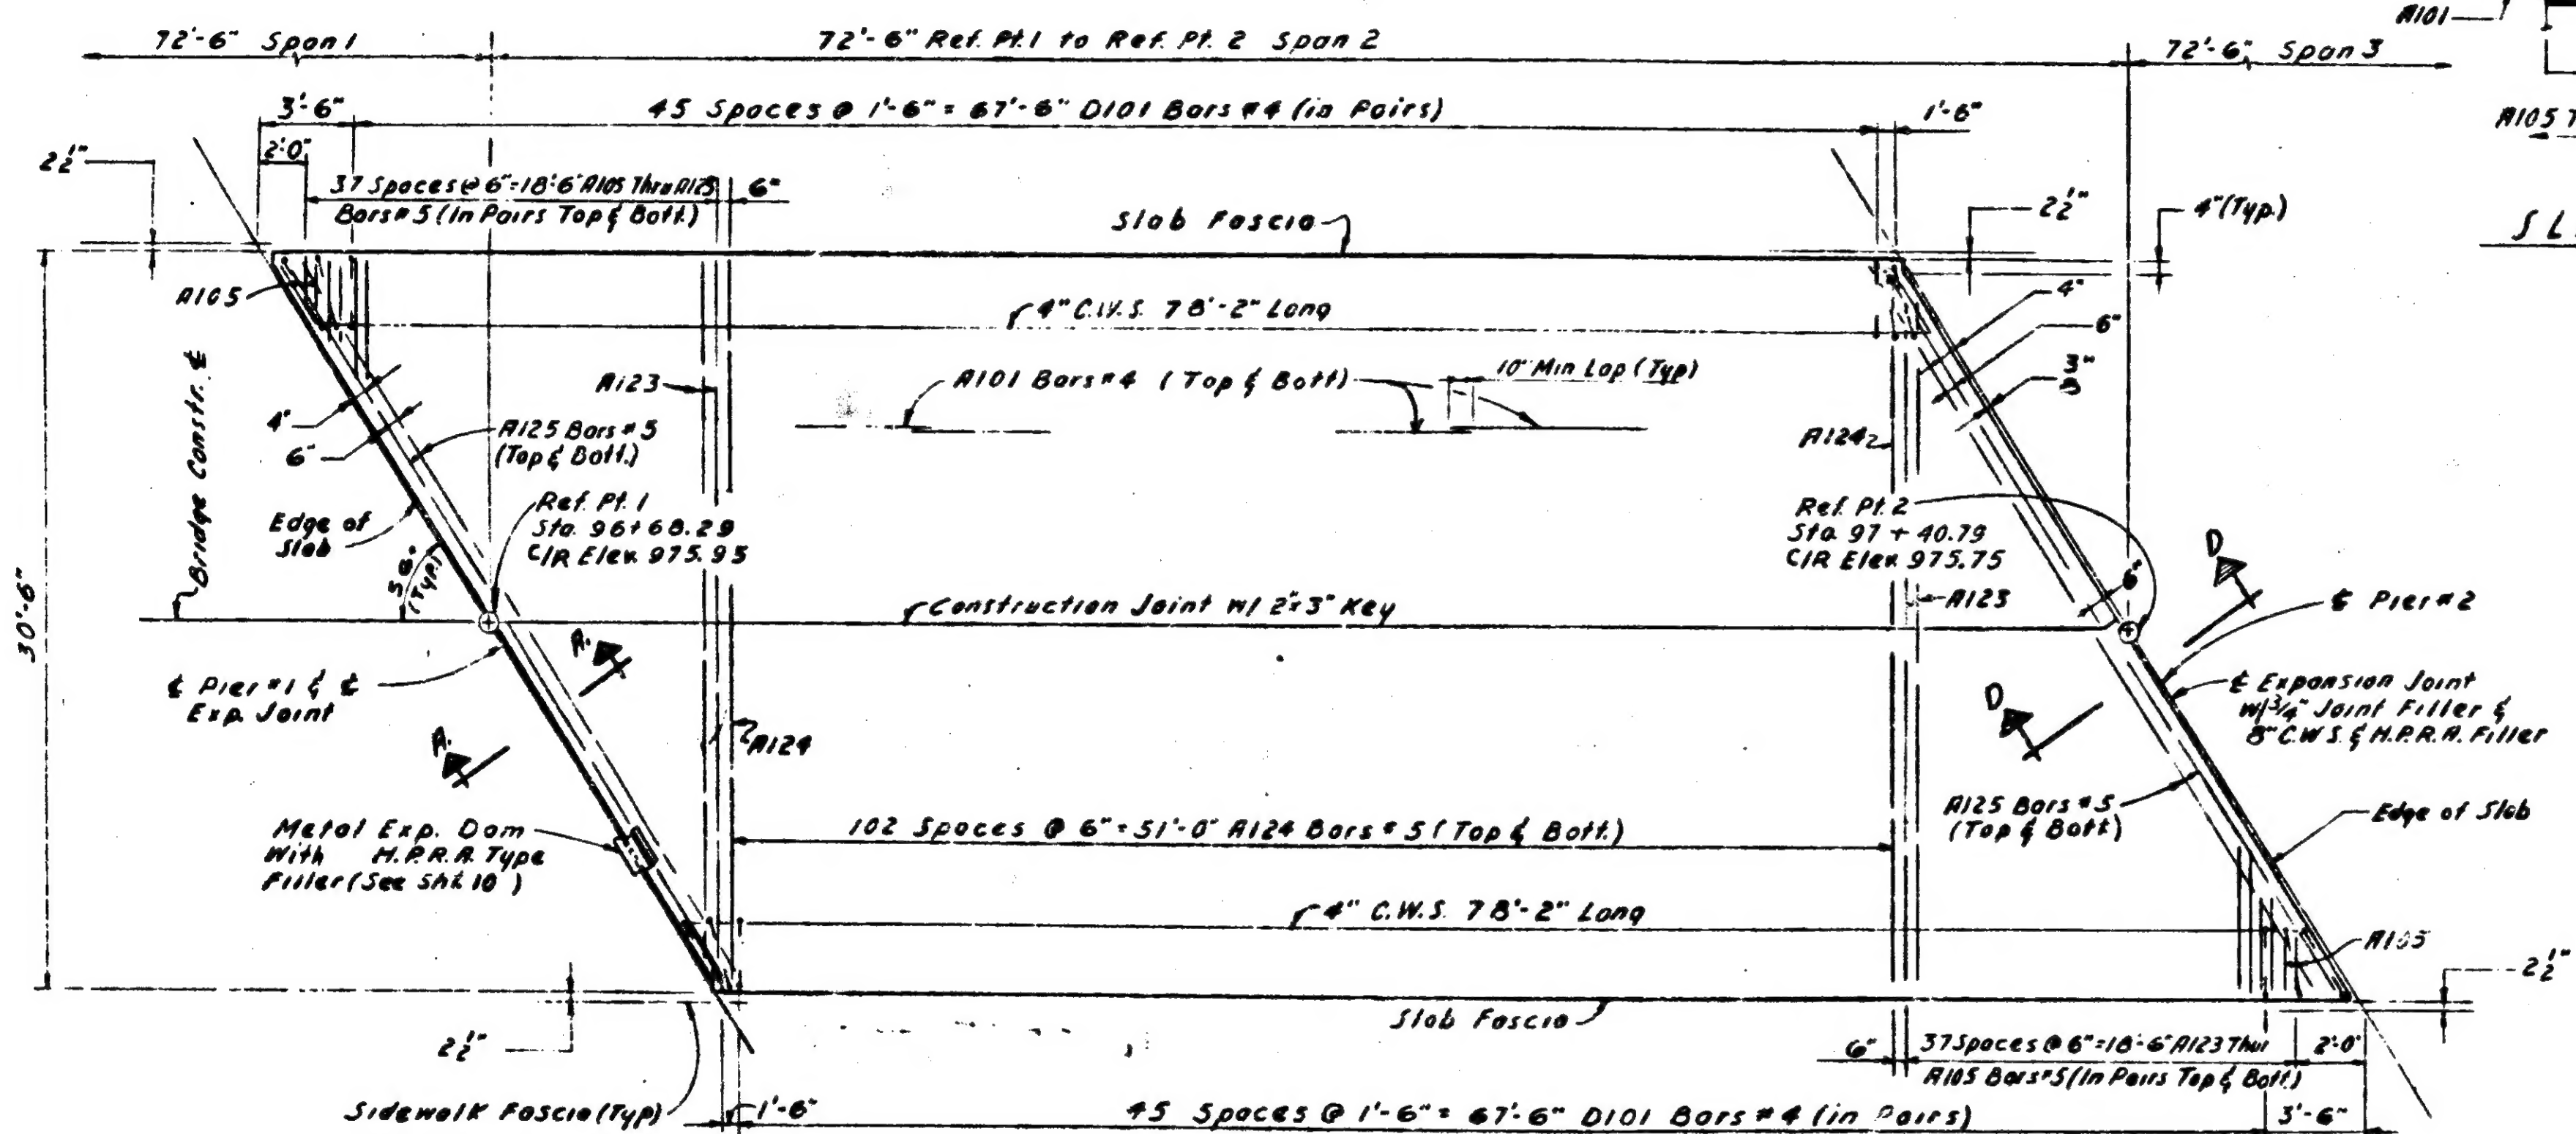 A101
72'-6" Span 1
72'-6" Ref. Pt. 1 to Ref. Pt. 2 Span 2
72'-6" Span 3
3'-6"
45 Spaces @ 1'-6" = 67'-6" D101 Bars #4 (in Pairs)
1'-6"
A105
2'-0"
2½"
37 Spaces @ 6" = 18'-6" A105 Thru A123
6"
Bars #5 (In Pairs Top & Bott.)
Slab Fascia
2½"
4" (Typ.)
SL
A105
4" C.W.S. 78'-2" Long
4"
6"
3"
8
A123
A101 Bars #4 (Top & Bott)
10" Min Lap (Typ)
4"
6"
A125 Bars #5
(Top & Bott.)
A124
Bridge Constr. ℄
Edge of
Slab
Ref. Pt. 1
Sta. 96+68.29
C/R Elev. 975.95
Ref. Pt. 2
Sta 97 + 40.79
C/R Elev. 975.75
(Typ)
30'-6"
D
6"
Construction Joint w/ 2"x3" Key
A123
℄ Pier #2
A
℄ Pier #1 & ℄
Exp. Joint
℄ Expansion Joint
w/ ¾" Joint Filler &
8" C.W.S. & H.P.R.A. Filler
D
A
A124
Metal Exp. Dam
With H.P.R.A. Type
Filler (See Sht. 10)
102 Spaces @ 6" = 51'-0" A124 Bars #5 (Top & Bott.)
A125 Bars #5
(Top & Bott)
Edge of Slab
4" C.W.S. 78'-2" Long
A105
2½"
Slab Fascia
2½"
6"
37 Spaces @ 6" = 18'-6" A123 Thru
2'-0"
A105 Bars #5 (In Pairs Top & Bott.)
Sidewalk Fascia (Typ)
1'-6"
45 Spaces @ 1'-6" = 67'-6" D101 Bars #4 (in Pairs)
3'-6"